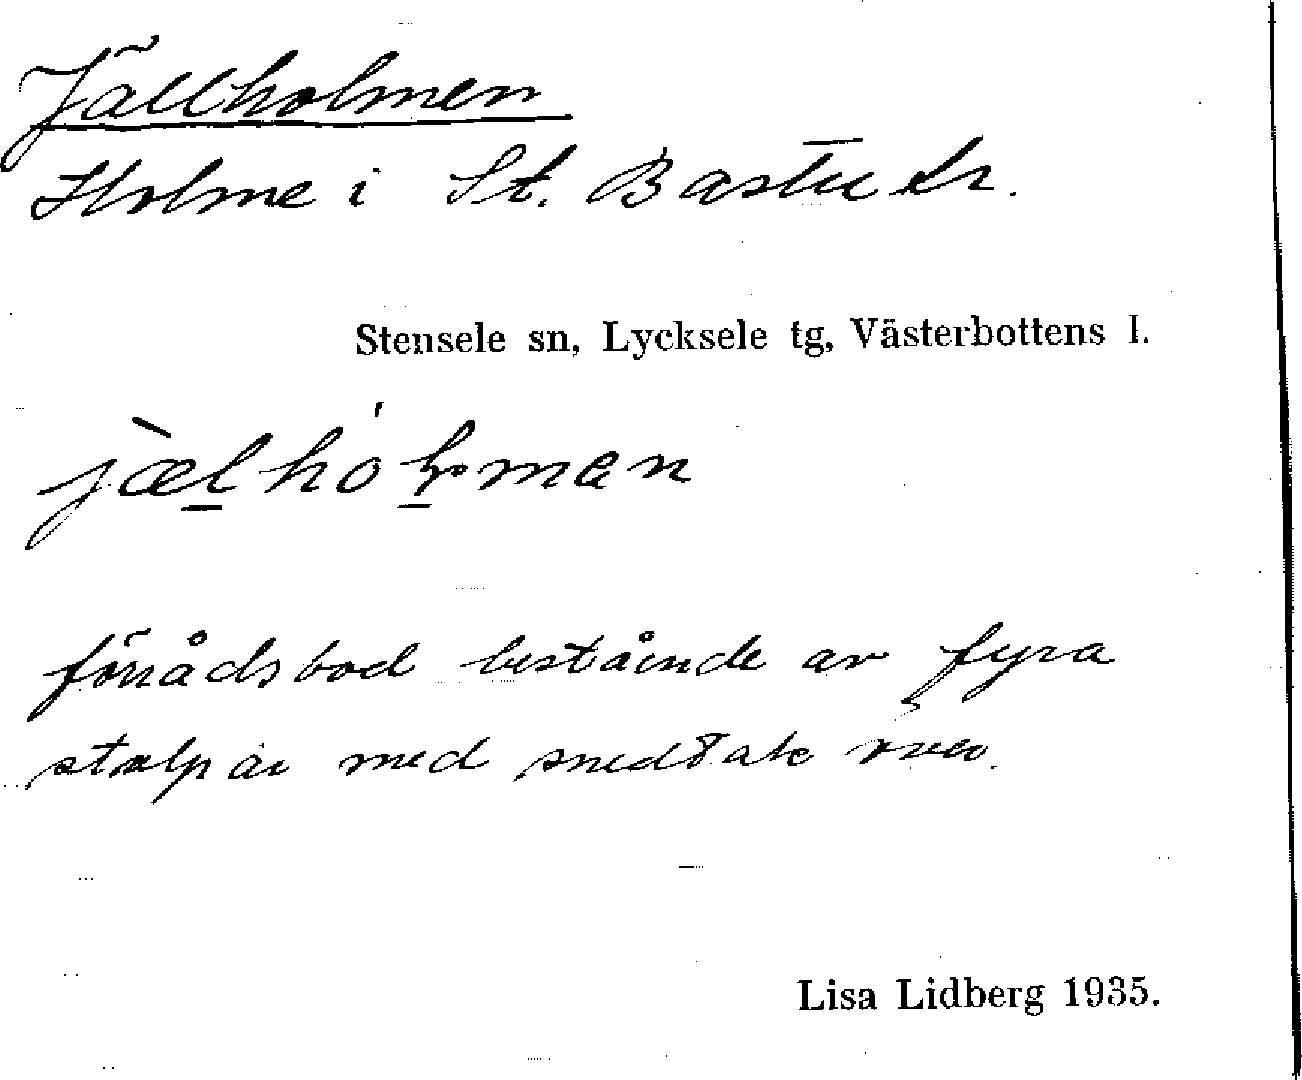 Jällholmen
Holme i St. Bastutr.
Stensele sn, Lycksele tg, Västerbottens l.
jæ̀lhólmen
förrådsbod bestående av fyra
stolpar med snedtak över.
Lisa Lidberg 1935.